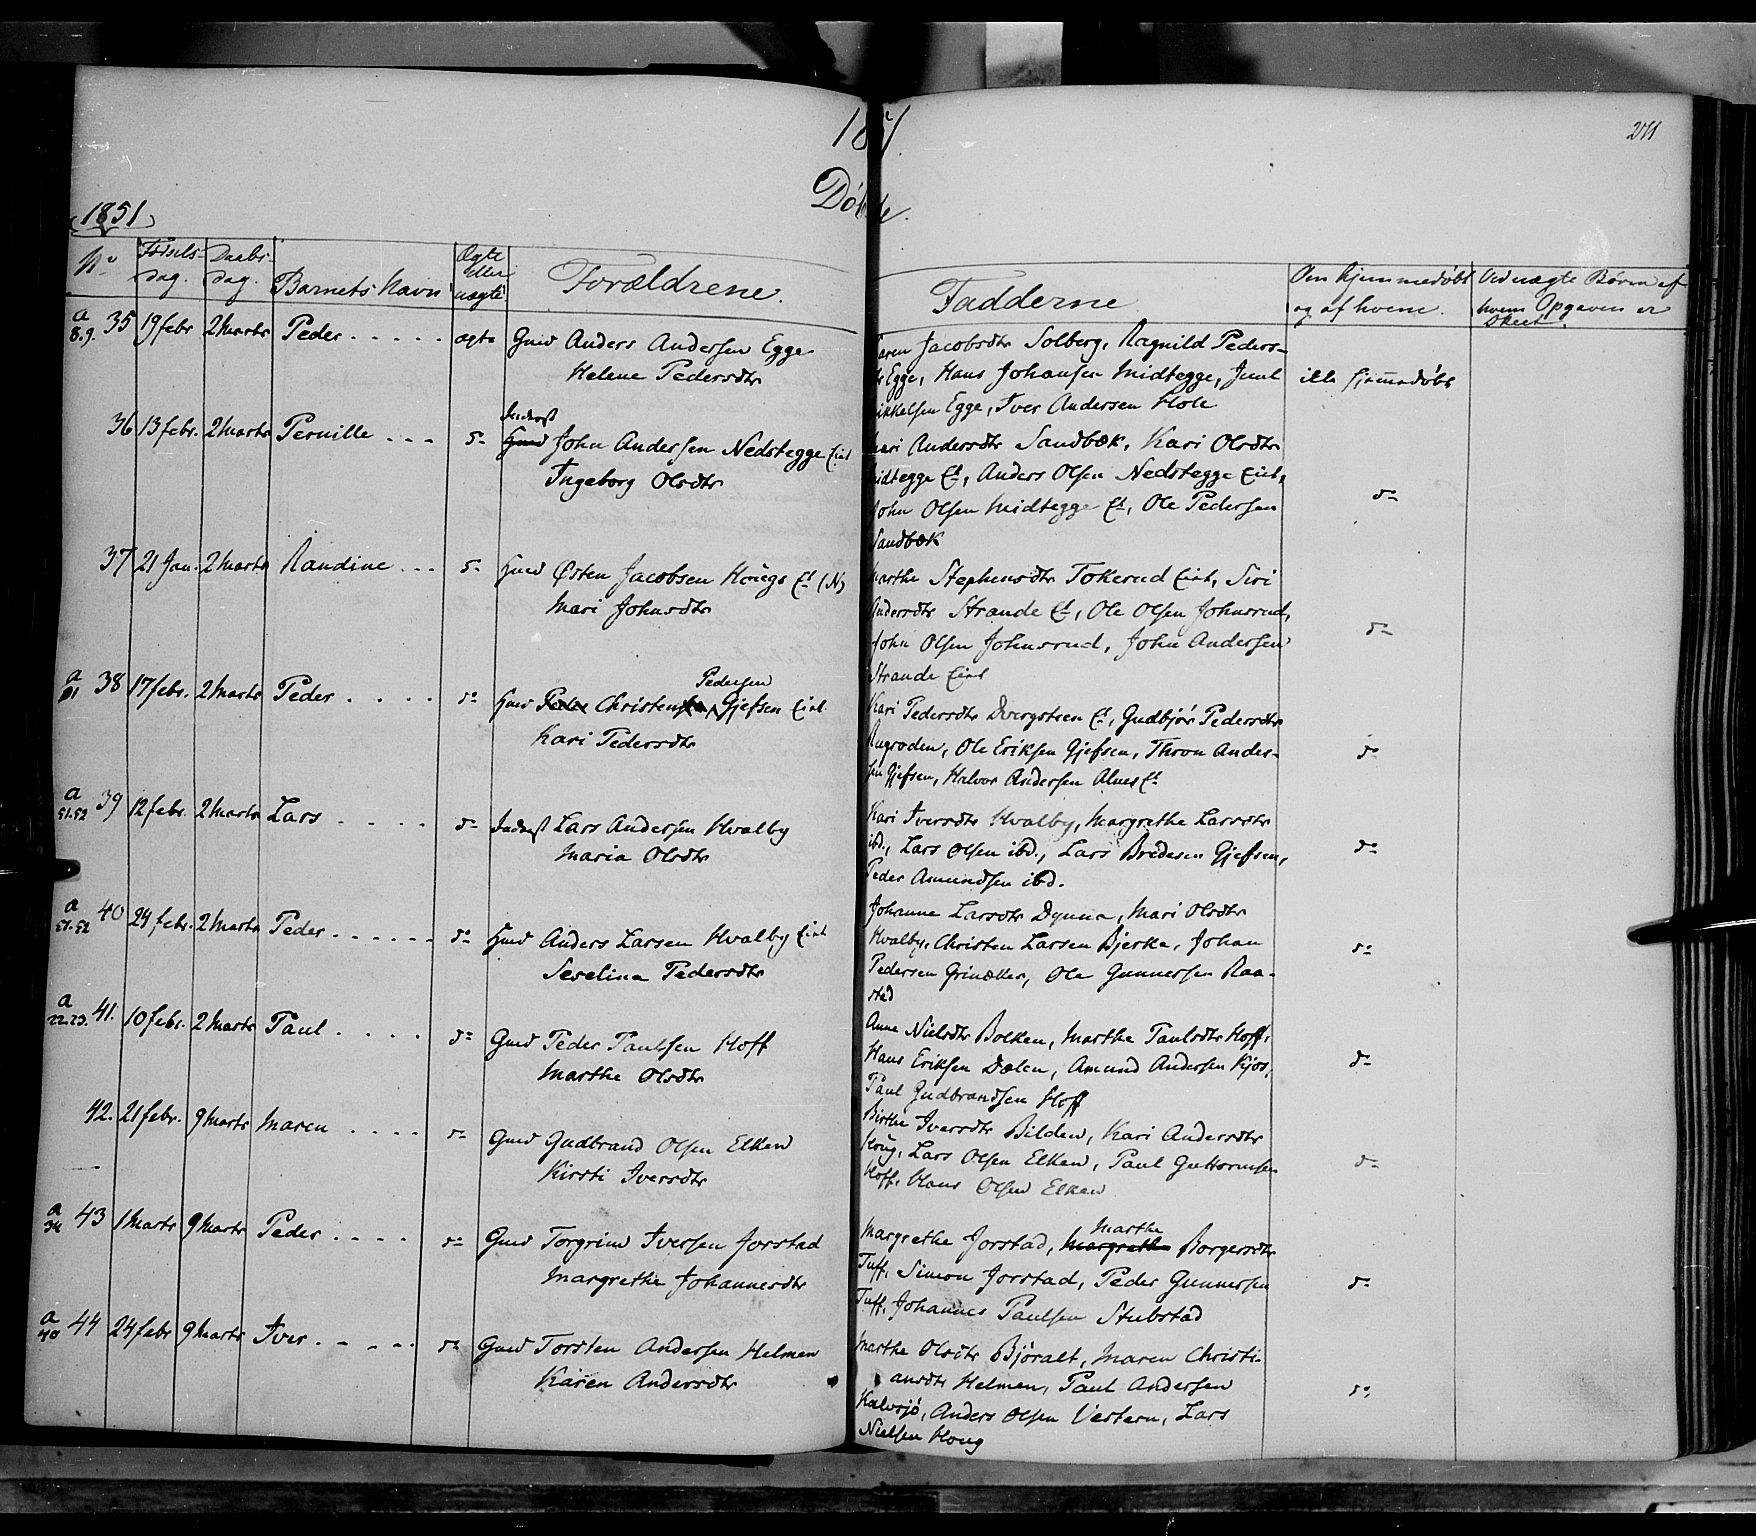 1851.
211
Døbte.
1851
No
Fødsels-
Dag.
Daabs-
Dag.
Barnets Navn
Ægte
eller
uægte
Forældrene.
Fadderne
Om hjemmedøbt
og af hvem.
Ved uægte Børn af
hvem Opgaven er
Skeet.
a
8.9. 35 19 febr 2 Marts Peder ..... ægte Gmd Anders Andersen Egge
Helene Pedersdtr
Karen Jacobsdtr Solberg, Ragnild Peders-
dtr Egge, Hans Johansen Midtegge, Juul
Mikkelsen Egge, Iver Andersen Hole
ikke hjemmedøbt
36 13 febr. 2 Marts Pernille ... do
Inderst
Gmd John Andersen Nedstegge Eiet
Ingeborg Olsdtr
Mari Andersdtr Sandbæk, Kari Olsdtr
Midtegge Et, Anders Olsen Nedstegge Eiet,
John Olsen Midtegge Et, Ole Pedersen
Sandbæk
do
37 21 Jan. 2 Marts Randine ... do Gmd Østen Jacobsen Houg Et (N)
Mari Johnsdtr
Marthe Stephensdtr Tokerud Eiet, Siri
Andersdtr Strande Et, Ole Olsen Johnsrud,
John Olsen Johnsrud, John Andersen
Strande Eiet
do
a
38 17 febr. 2 Marts Peder .... do
Pedersen
Gmd Peder Christensen Gjefsen Eiet
Kari Pedersdtr
Kari Pedersdtr Dvergsteen Et, Gudbjør Pedersdtr
Rugroden, Ole Eriksen Gjefsen, Thron Ander-
sen Gjefsen, Halvor Andersen Alm Et
do
a
51.52 39 12 febr. 2 Marts Lars .... do Inderst Lars Andersen Hvalby
Maria Olsdtr
Kari Iversdtr Hvalby, Margrethe Larsdtr
ibd., Lars Olsen ibd., Lars Bredesen Gjefsen,
Peder Amundsen ibd.
do
a
51.52 40 24 febr. 2 Marts Peder ...... do Gmd Anders Larsen Hvalby Eiet
Seveline Pedersdtr
Johanne Larsdtr Dynna, Mari Olsdtr
Hvalby, Christen Larsen Bjerke, Johan
Pedersen Grinakker, Ole Gunnersen Raa-
stad
do
a
22.23. 41. 10 febr. 2 Marts Paul .... do Gmd Peder Paulsen Hoff
Marthe Olsdtr
Anne Nielsdtr Bolken, Marthe Paulsdtr Hoff,
Hans Eriksen Dælen, Amund Andersen Kjos,
Paul Gudbrandsen Hoff
do
42. 21 febr. 9 Marts Maren .... do Gmd Gudbrand Olsen Elken
Kirsti Iversdtr
Birthe Iversdtr Bilden, Kari Andersdtr
Houg, Lars Olsen Elken, Paul Guttormsen
Hoff, Hans Olsen Elken
do
a
34 43 1 Marts 9 Marts Peder .... do Gmd Torgrim Iversen Jorstad
Margrethe Johannesdtr
Marthe
Margrethe Jorstad, Margrethe Borgersdtr
Tuff, Simon Jorstad, Peder Gunnersen
Tuff, Johannes Paulsen Stubstad
do
a
40 44 24 febr 9 Marts Iver ..... do Gmd Torsten Andersen Helmen
Karen Andersdtr
Marthe Olsdtr Bjøralt, Maren Christi-
ansdtr Helmen, Paul Andersen
Kalvsjø, Anders Olsen Vestern, Lars
Nielsen Houg
do